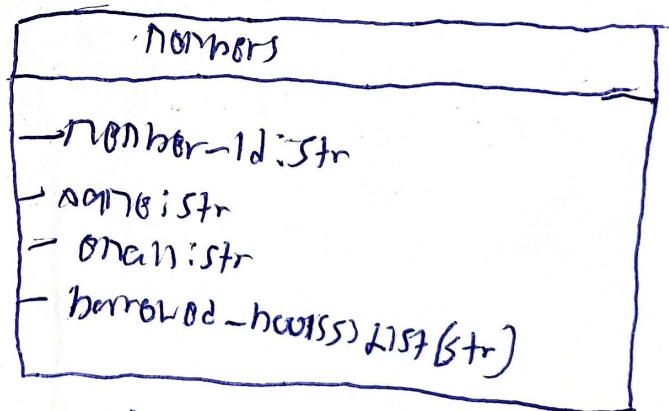 members
- member-id: str
- name: str
- email: str
- borrowed-books: List(str)